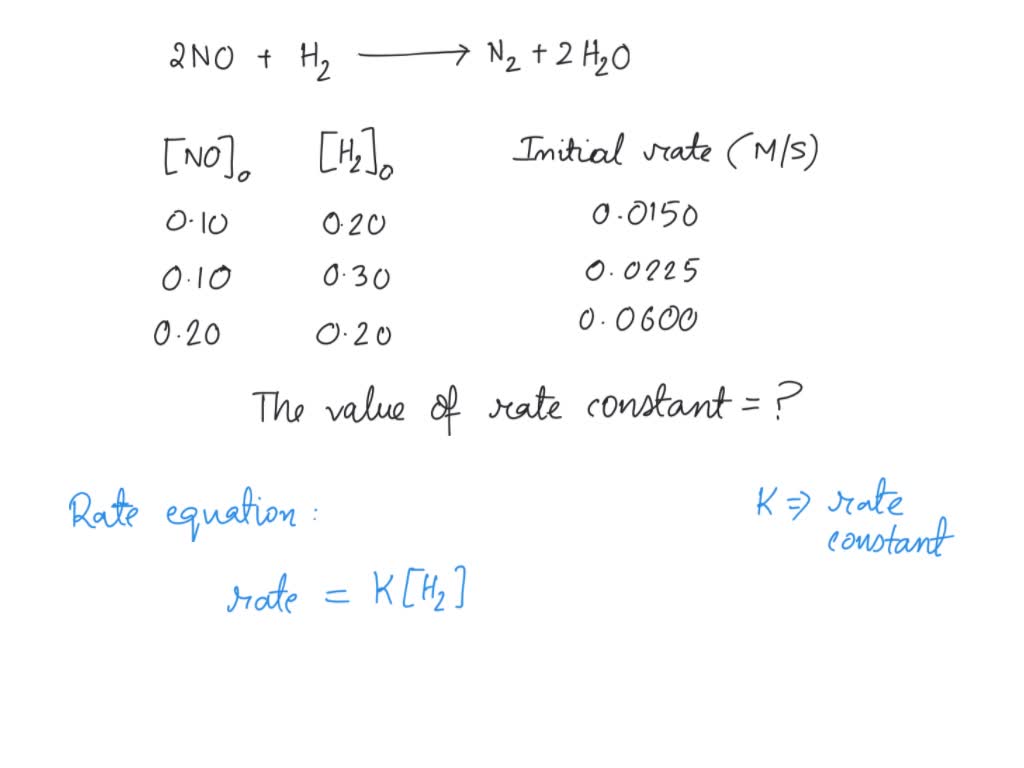 2NO + H₂ ⟶ N₂ + 2H₂O
[NO]₀ [H₂]₀ Initial rate (M/S)
0.10 0.20 0.0150
0.10 0.30 0.0225
0.20 0.20 0.0600
The value of rate constant = ?
Rate equation: K ⇒ rate constant
rate = K[H₂]